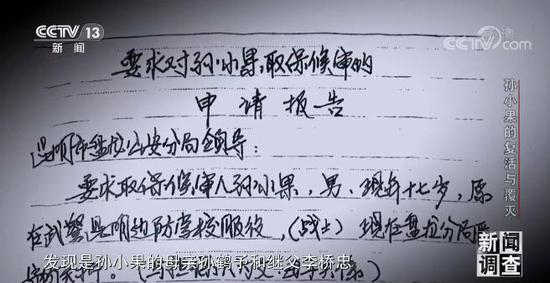 CCTV 13
新闻
CCTV.com
要求对孙小果取保候审的
申请报告
昆明市盘龙公安分局领导:
要求取保候审人孙小果,男,现年十七岁,原
在武警昆明边防学校服役,(战士)现在盘龙分局
发现是孙小果的母亲孙鹤予和继父李桥忠
孙小果的复活与覆灭
新闻
调查